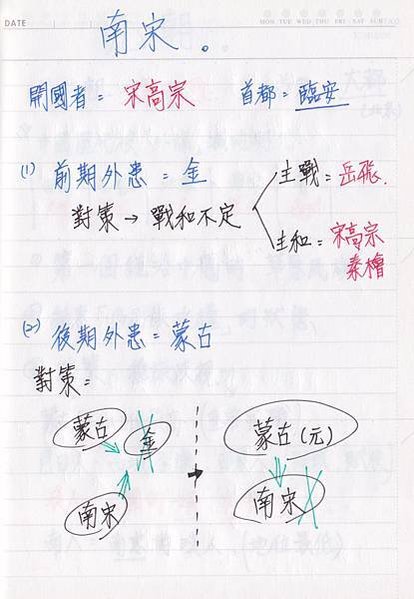 DATE
MON TUE WED THU FRI SAT SUN
南宋。
開國者=宋高宗 首都=臨安
(1) 前期外患=金
主戰=岳飛.
對策→戰和不定
主和=宋高宗
秦檜
(2) 後期外患=蒙古
對策=
蒙古 金 蒙古(元)
南宋 南宋